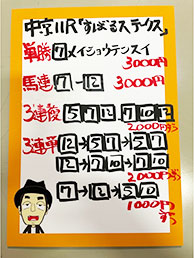 中京11R「すばるステークス」
単勝 7 メイショウテンスイ
3000円
馬連 7-12 3000円
3連複 5 7 12、7 10 12
2000円ずつ
3連単 12→7→5 12→5→7
12→7→10 12→10→7
2000円ずつ
7→12→5 10
1000円ずつ